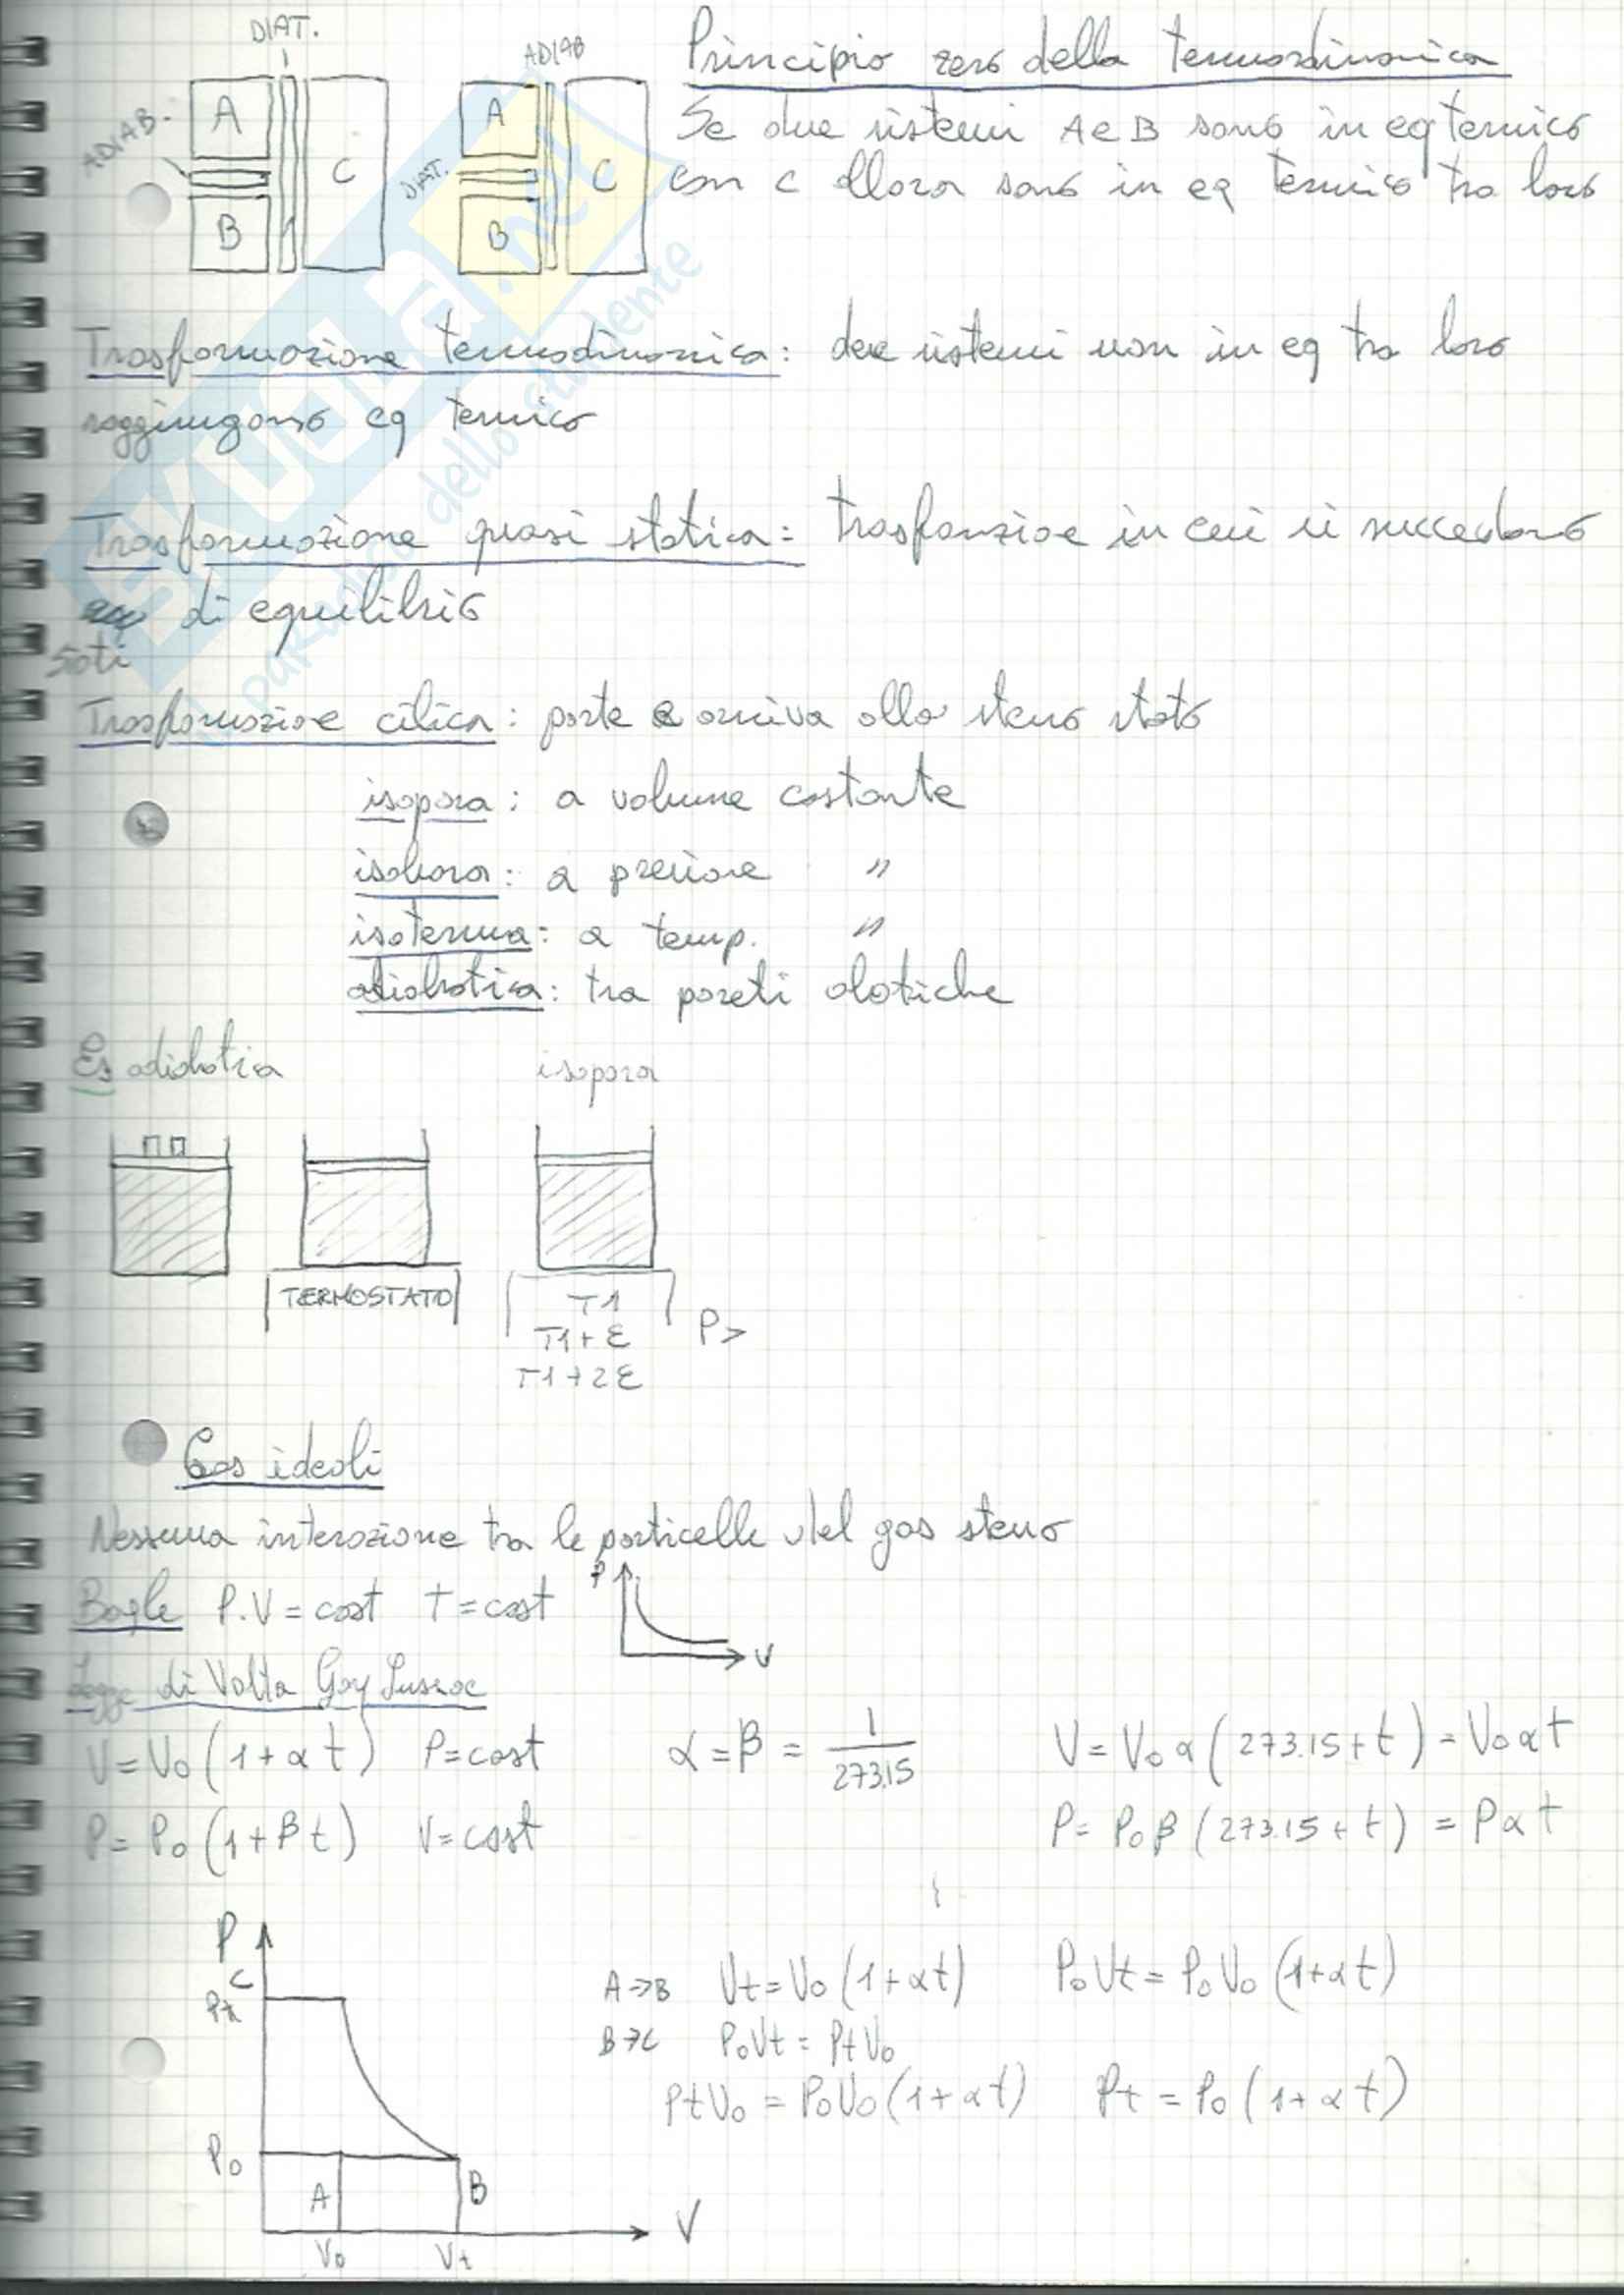 DIAT.
ADIAB
Principio zero della termodinamica
ADIAB.
A
C
B
DIAT.
A
C
B
Se due sistemi A e B sono in eq termico
con C allora sono in eq termico tra loro
Trasformazione termodinamica: due sistemi non in eq tra loro
raggiungono eq termico
Trasformazione quasi statica: trasfonzioe in cui si succedono
di equilibrio
Stati
Trasformazione cilica: parte e arriva allo stesso stato
isopora: a volume costante
isobara: a pressione "
isoterma: a temp. "
adiabatica: tra pareti
Es adiabatia
isopora
TERMOSTATO
T1
T1+ε
T1+2ε
P>
Gas ideali
Nessuna interazione tra le particelle del gas stesso
Boyle P.V=cost T=cost
P
V
Legge di Volta Gay Lussac
V=V₀(1+αt) P=cost α=β= 1/273.15 V=V₀α(273.15+t)=V₀αt
P=P₀(1+βt) V=cost P=P₀β(273.15+t)=Pαt
P
C
Pt
A→B Vt=V₀(1+αt) P₀Vt=P₀V₀(1+αt)
B→C P₀Vt=PtV₀
PtV₀=P₀V₀(1+αt) Pt=P₀(1+αt)
P₀
A
B
V
V₀ Vt
SKUOLA.net
paradiso dello studente